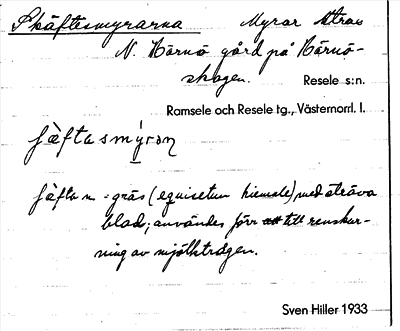 Skäftesmyrarna Myrar strax
N. Härnö gård på Härnö-
skogen. Resele s:n.
Ramsele och Resele tg., Västernorrl. l.
fæftasmýran
fæfta m = gräs (equisetum hiemale) med sträva
blad; användes förr till renskur-
ning av mjölktrågen.
Sven Hiller 1933